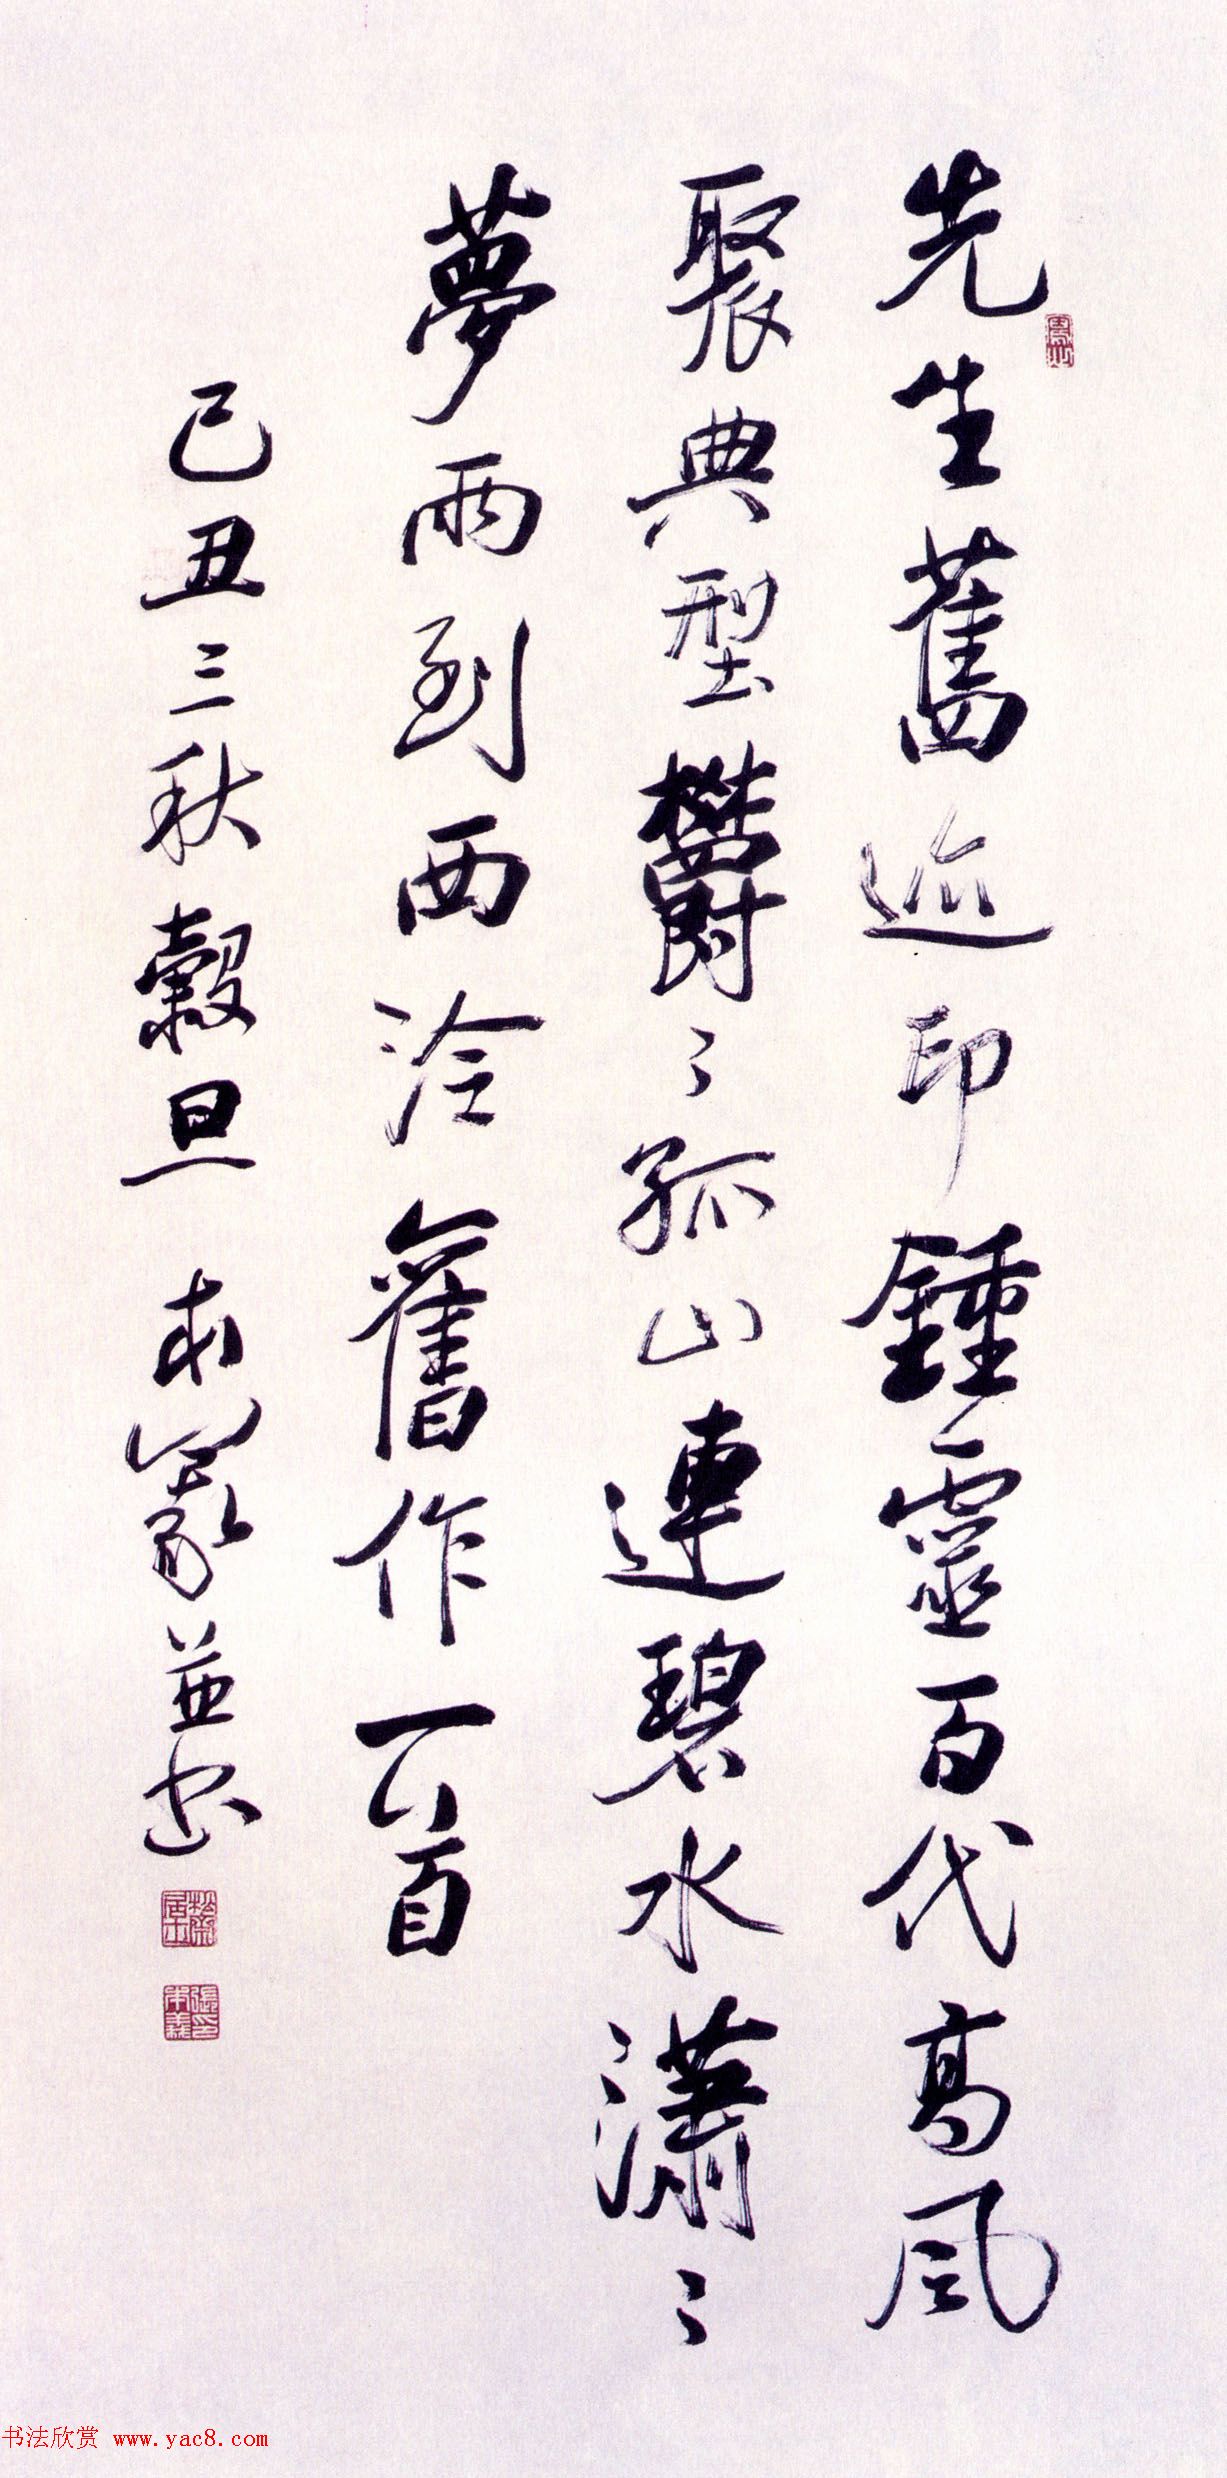 先生舊迹印鍾靈百代高風
聚典型鬱〻孤山連碧水瀟〻
夢雨到西泠舊作一首
己丑三秋穀旦 本義並书
張印本義
书法欣赏 www.yac8.com